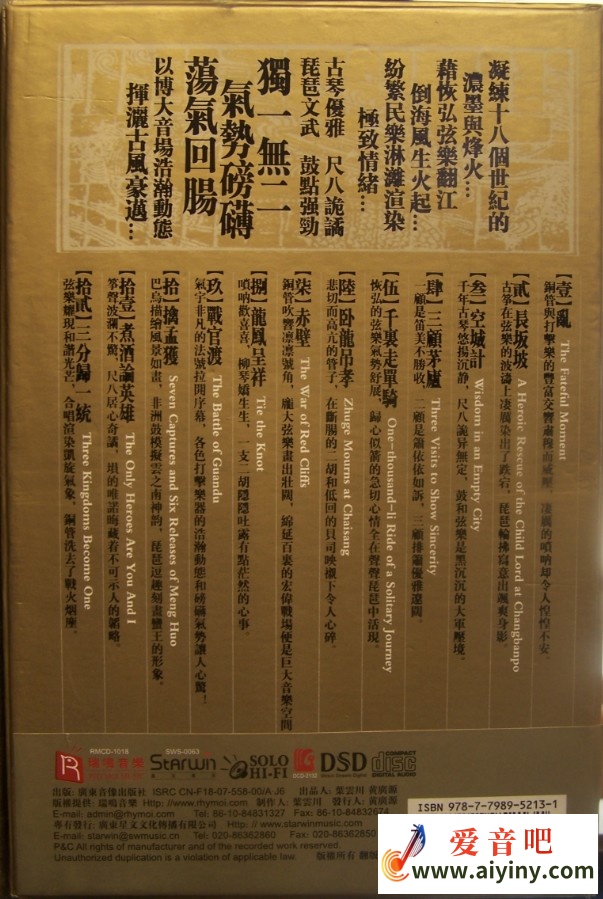 凝練十八個世紀的
濃墨與烽火…
藉恢弘弦樂翻江
倒海風生火起…
紛繁民樂淋灕渲染
極致情緒…
古琴優雅 尺八詭譎
琵琶文武 鼓點强勁
獨一無二
氣勢磅礴
蕩氣回腸
以博大音場浩瀚動態
揮灑古風豪邁…
【壹】亂 The Fateful Moment
銅管與打擊樂的豐富交響肅穆而威壓，凄厲的嗩呐却令人惶惶不安。
【貳】長坂坡 A Heroic Rescue of the Child Lord at Changbanpo
古箏在弦樂的波濤上凄厲染出了跌宕，琵琶輪拂寫意出颯爽身影。
【叁】空城計 Wisdom in an Empty City
千年古琴悠揚沉静，尺八詭异無定，鼓和弦樂是黑沉沉的大軍壓境。
【肆】三顧茅廬 Three Visits to Show Sincerity
一顧是笛美不勝收，二顧是簫依依如訴，三顧排簫優雅遼闊。
【伍】千裏走單騎 One-thousand-li Ride of a Solitary Journey
恢弘的弦樂氣勢舒展，歸心似箭的急切心情全在聲聲琵琶中活現。
【陸】卧龍吊孝 Zhuge Mourns at Chaisang
悲切而高亢的管子，在斷腸的二胡和低回的貝司映襯下令人心碎。
【柒】赤壁 The War of Red Cliffs
銅管吹響凛凛號角，龐大弦樂畫出壯闊，綿延百裏的宏偉戰場便是巨大音樂空間
【捌】龍鳳呈祥 Tie the Knot
嗩呐歡喜喜，柳琴嬌生生，一支二胡隱隱吐露有點茫然的心事。
【玖】戰官渡 The Battle of Guandu
氣宇非凡的法號拉開序幕，各色打擊樂器的浩瀚動態和磅礴氣勢讓人心驚！
【拾】擒孟獲 Seven Captures and Six Releases of Meng Huo
巴烏描繪風景如畫，非洲鼓模擬雲之南神韵，琵琶逗趣刻畫蠻王的形象。
【拾壹】煮酒論英雄 The Only Heroes Are You And I
箏聲波瀾不驚，尺八居心奇譎，塤的唯諾晦藏着不可示人的韜略。
【拾貳】三分歸一統 Three Kingdoms Become One
弦樂鋪現和諧光芒，合唱渲染凱旋氣象，銅管洗去了戰火烟塵。
RMCD-1018
R 瑞鳴音樂
SWS-0063
Starwin
SOLO
HI-FI
DSD
Direct Stream Digital
COMPACT
disc
DIGITAL AUDIO
出版: 廣東音像出版社 ISRC CN-F18-07-558-00/A J6 出品人: 葉雲川 黄廣源
版權提供: 瑞鳴音樂 Http: //www.rhymoi.com 制作人: 葉雲川 發行人: 黄廣源
E-mail: admin@rhymoi.com Tel: 86-10-84831327 Fax: 86-10-84832674
專有發行: 廣東星文文化傳播有限公司 Http: //www.starwinmusic.com
E-mail: starwin@swmusic.cn Tel: 020-86362860 Fax: 020-86362850
P&C All rights of manufacturer and of the recorded work reserved.
Unauthorized duplication is a violation of applicable law. 版權所有 翻版
ISBN 978-7-7989-5213-1
爱音吧
www.aiyiny.com